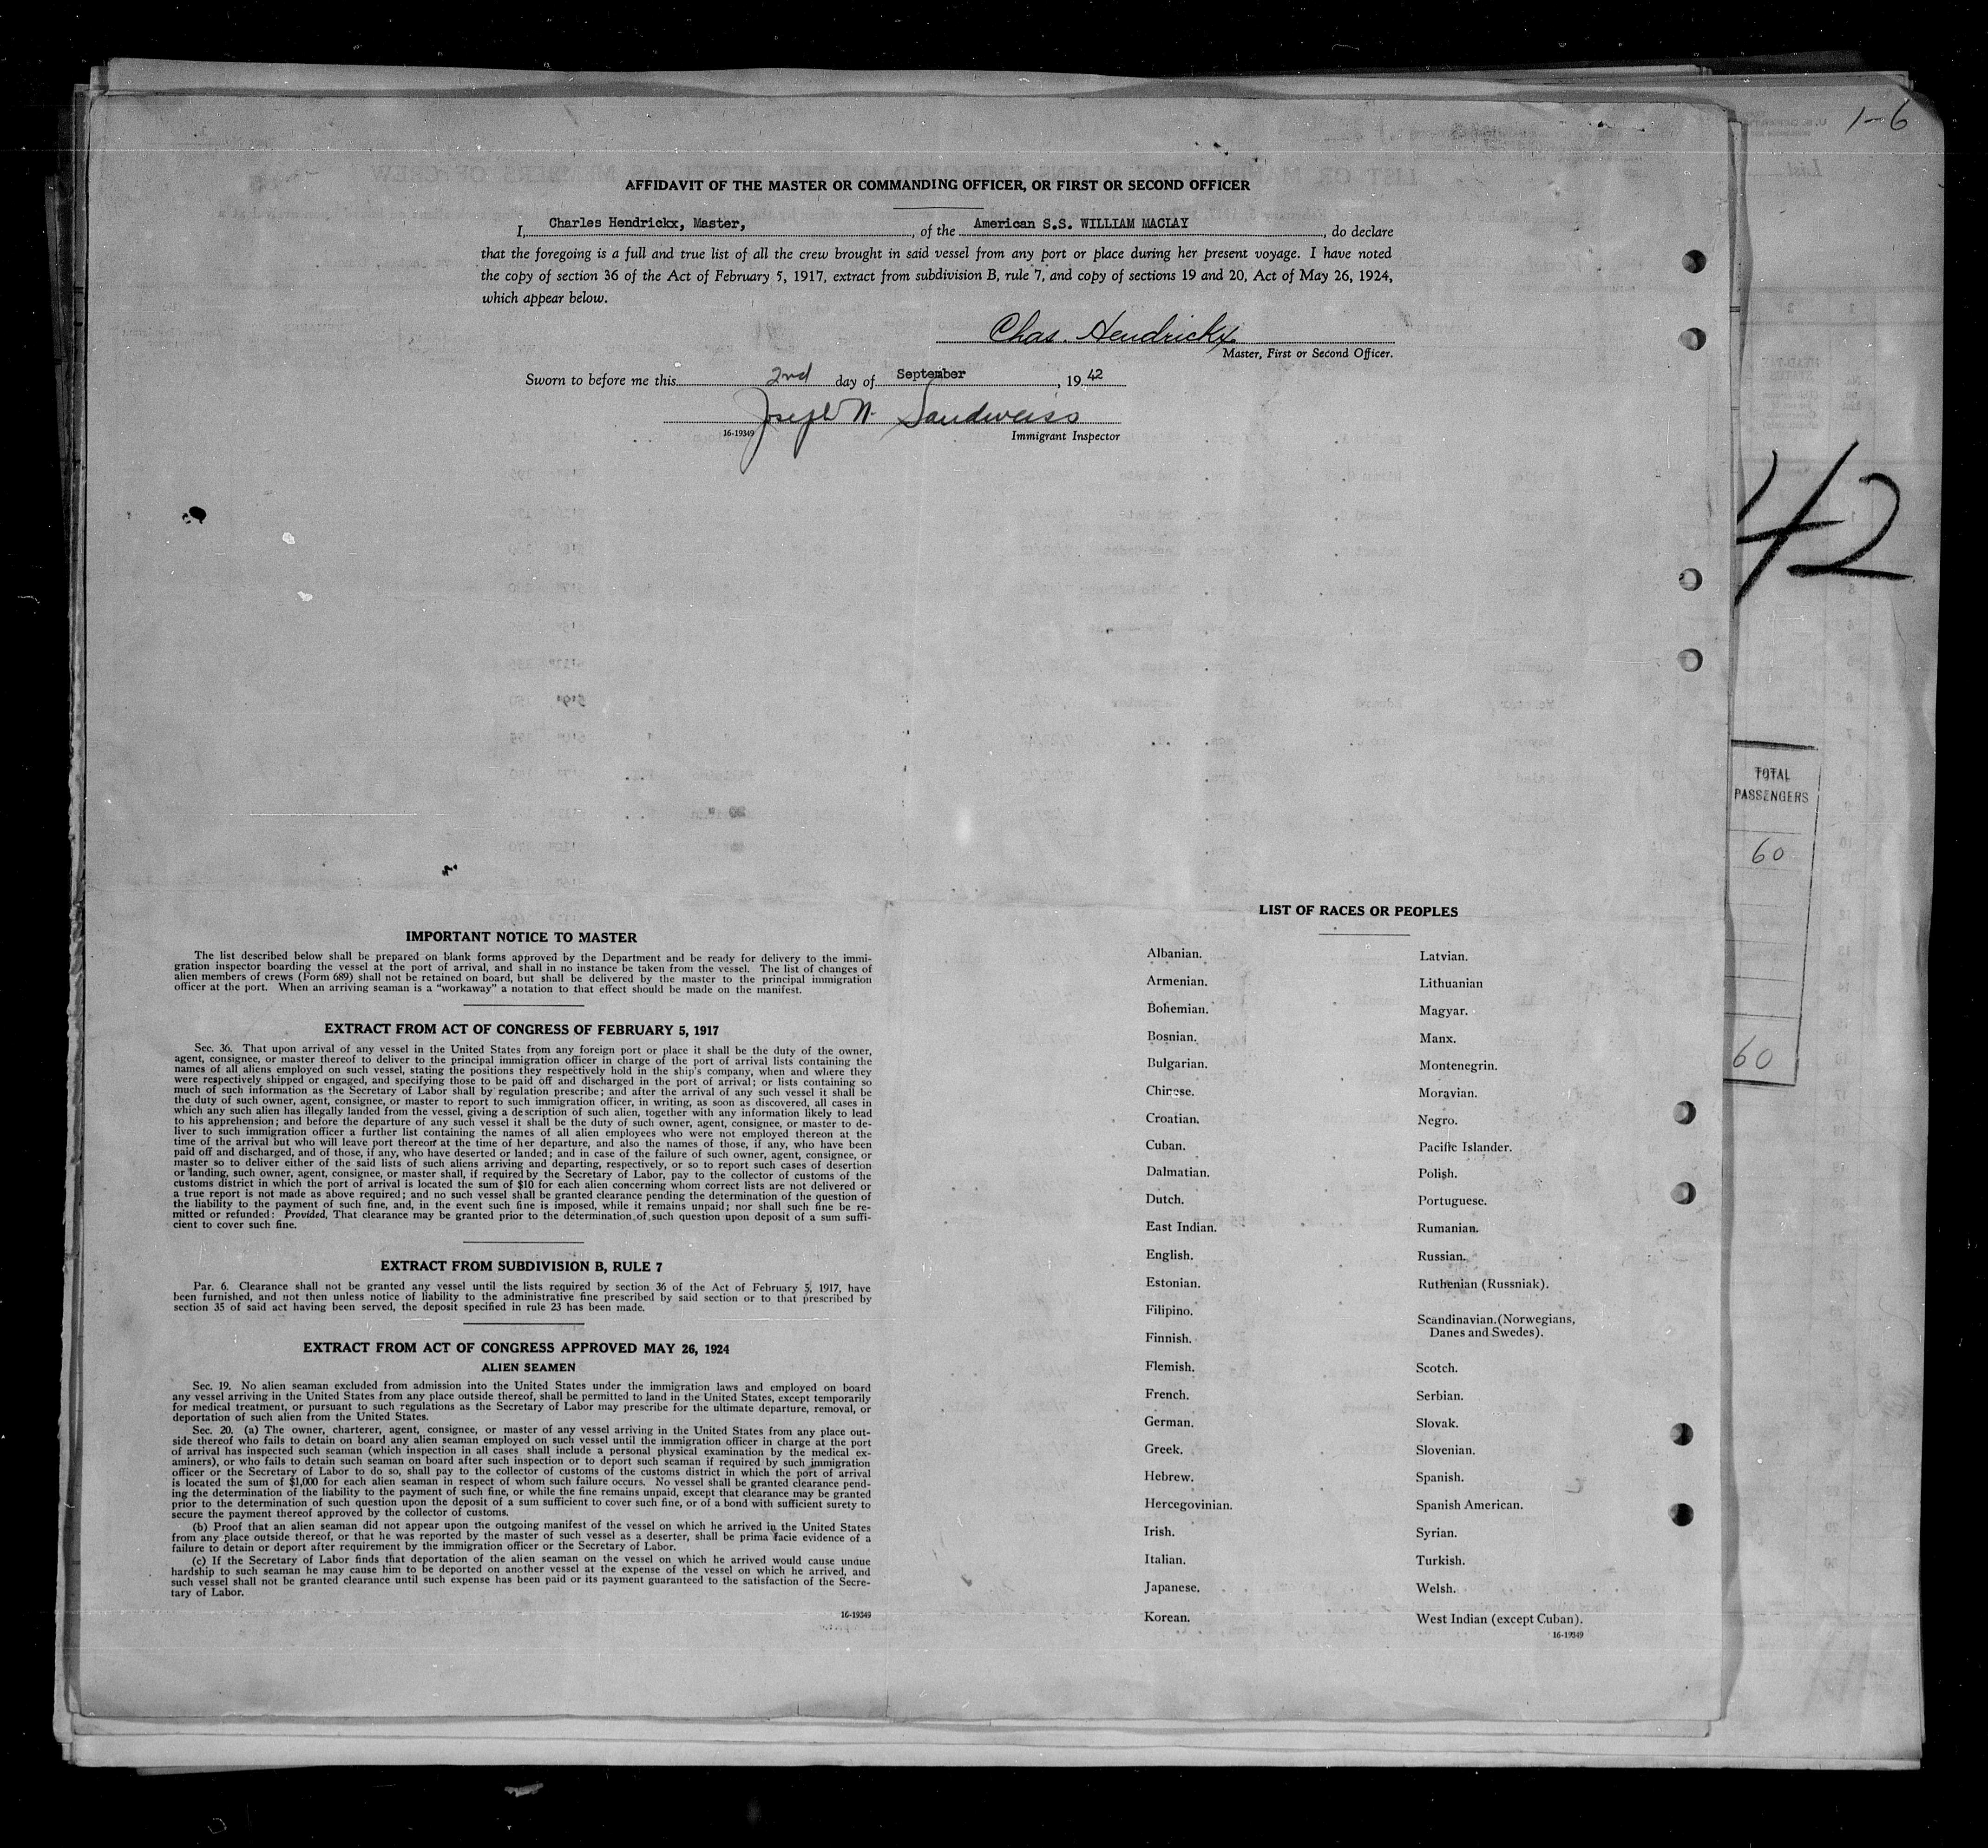 1-6
AFFIDAVIT OF THE MASTER OR COMMANDING OFFICER, OR FIRST OR SECOND OFFICER
I, Charles Hendrickx, Master, , of the American S.S. WILLIAM MACLAY , do declare
that the foregoing is a full and true list of all the crew brought in said vessel from any port or place during her present voyage. I have noted
the copy of section 36 of the Act of February 5, 1917, extract from subdivision B, rule 7, and copy of sections 19 and 20, Act of May 26, 1924,
which appear below.
Chas. Hendrickx
Master, First or Second Officer.
Sworn to before me this 2nd day of September , 19 42
Joseph N. Sandweiss
16-19349 Immigrant Inspector
42
TOTAL
PASSENGERS
60
60
IMPORTANT NOTICE TO MASTER
The list described below shall be prepared on blank forms approved by the Department and be ready for delivery to the immi-
gration inspector boarding the vessel at the port of arrival, and shall in no instance be taken from the vessel. The list of changes of
alien members of crews (Form 689) shall not be retained on board, but shall be delivered by the master to the principal immigration
officer at the port. When an arriving seaman is a "workaway" a notation to that effect should be made on the manifest.
EXTRACT FROM ACT OF CONGRESS OF FEBRUARY 5, 1917
Sec. 36. That upon arrival of any vessel in the United States from any foreign port or place it shall be the duty of the owner,
agent, consignee, or master thereof to deliver to the principal immigration officer in charge of the port of arrival lists containing the
names of all aliens employed on such vessel, stating the positions they respectively hold in the ship's company, when and where they
were respectively shipped or engaged, and specifying those to be paid off and discharged in the port of arrival; or lists containing so
much of such information as the Secretary of Labor shall by regulation prescribe; and after the arrival of any such vessel it shall be
the duty of such owner, agent, consignee, or master to report to such immigration officer, in writing, as soon as discovered, all cases in
which any such alien has illegally landed from the vessel, giving a description of such alien, together with any information likely to lead
to his apprehension; and before the departure of any such vessel it shall be the duty of such owner, agent, consignee, or master to de-
liver to such immigration officer a further list containing the names of all alien employees who were not employed thereon at the
time of the arrival but who will leave port thereof at the time of her departure, and also the names of those, if any, who have been
paid off and discharged, and of those, if any, who have deserted or landed; and in case of the failure of such owner, agent, consignee, or
master so to deliver either of the said lists of such aliens arriving and departing, respectively, or so to report such cases of desertion
or landing, such owner, agent, consignee, or master shall, if required by the Secretary of Labor, pay to the collector of customs of the
customs district in which the port of arrival is located the sum of $10 for each alien concerning whom correct lists are not delivered or
a true report is not made as above required; and no such vessel shall be granted clearance pending the determination of the question of
the liability to the payment of such fine, and, in the event such fine is imposed, while it remains unpaid; nor shall such fine be re-
mitted or refunded: Provided, That clearance may be granted prior to the determination of such question upon deposit of a sum suffi-
cient to cover such fine.
EXTRACT FROM SUBDIVISION B, RULE 7
Par. 6. Clearance shall not be granted any vessel until the lists required by section 36 of the Act of February 5, 1917, have
been furnished, and not then unless notice of liability to the administrative fine prescribed by said section or to that prescribed by
section 35 of said act having been served, the deposit specified in rule 23 has been made.
EXTRACT FROM ACT OF CONGRESS APPROVED MAY 26, 1924
ALIEN SEAMEN
Sec. 19. No alien seaman excluded from admission into the United States under the immigration laws and employed on board
any vessel arriving in the United States from any place outside thereof, shall be permitted to land in the United States, except temporarily
for medical treatment, or pursuant to such regulations as the Secretary of Labor may prescribe for the ultimate departure, removal, or
deportation of such alien from the United States.
Sec. 20. (a) The owner, charterer, agent, consignee, or master of any vessel arriving in the United States from any place out-
side thereof who fails to detain on board any alien seaman employed on such vessel until the immigration officer in charge at the port
of arrival has inspected such seaman (which inspection in all cases shall include a personal physical examination by the medical ex-
aminers), or who fails to detain such seaman on board after such inspection or to deport such seaman if required by such immigration
officer or the Secretary of Labor to do so, shall pay to the collector of customs of the customs district in which the port of arrival
is located the sum of $1,000 for each alien seaman in respect of whom such failure occurs. No vessel shall be granted clearance pend-
ing the determination of the liability to the payment of such fine, or while the fine remains unpaid, except that clearance may be granted
prior to the determination of such question upon the deposit of a sum sufficient to cover such fine, or of a bond with sufficient surety to
secure the payment thereof approved by the collector of customs.
(b) Proof that an alien seaman did not appear upon the outgoing manifest of the vessel on which he arrived in the United States
from any place outside thereof, or that he was reported by the master of such vessel as a deserter, shall be prima facie evidence of a
failure to detain or deport after requirement by the immigration officer or the Secretary of Labor.
(c) If the Secretary of Labor finds that deportation of the alien seaman on the vessel on which he arrived would cause undue
hardship to such seaman he may cause him to be deported on another vessel at the expense of the vessel on which he arrived, and
such vessel shall not be granted clearance until such expense has been paid or its payment guaranteed to the satisfaction of the Secre-
tary of Labor.
16-19349
LIST OF RACES OR PEOPLES
Albanian.
Armenian.
Bohemian.
Bosnian.
Bulgarian.
Chinese.
Croatian.
Cuban.
Dalmatian.
Dutch.
East Indian.
English.
Estonian.
Filipino.
Finnish.
Flemish.
French.
German.
Greek.
Hebrew.
Hercegovinian.
Irish.
Italian.
Japanese.
Korean.
Latvian.
Lithuanian
Magyar.
Manx.
Montenegrin.
Moravian.
Negro.
Pacific Islander.
Polish.
Portuguese.
Rumanian.
Russian.
Ruthenian (Russniak).
Scandinavian.(Norwegians,
Danes and Swedes).
Scotch.
Serbian.
Slovak.
Slovenian.
Spanish.
Spanish American.
Syrian.
Turkish.
Welsh.
West Indian (except Cuban).
16-19349